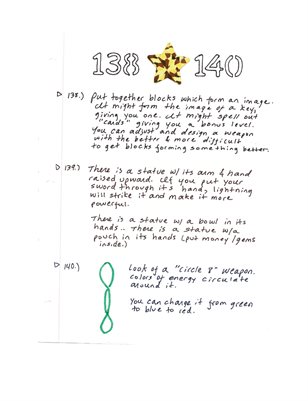 138 140
138.) Put together blocks which form an image.
It might form the image of a key,
giving you one. It might spell out
"cards" giving you a bonus level.
You can adjust and design a weapon
with the better & more difficult
to get blocks forming something better.
139.) There is a statue w/ its arm & hand
raised upward. If you put your
sword through its hand, lightning
will strike it and make it more
powerful.
There is a statue w/ a bowl in its
hands... There is a statue w/a
pouch in its hands (put money/gems
inside.)
140.) Look of a "circle 8" weapon.
colors of energy circulate
around it.
You can charge it from green
to blue to red.